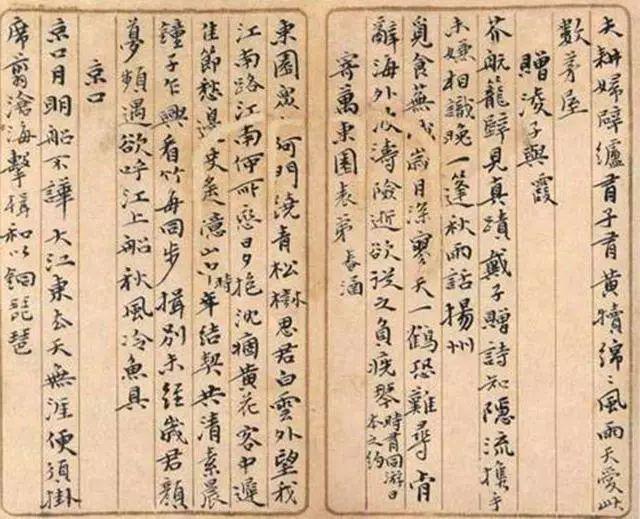 夫耕婦辟纑有子有黃犢綿〻風雨天愛此
數茅屋
贈淩子與霞
芥航籠壁見真蹟戴子贈詩知隱流攜手
未嫌相識晚一篷秋雨話揚州
覓食蕪歲月深寥天一鶴恐難尋肯
辭海外波濤險逝欲從之負疣琴時有同游日本之約
寄萬東園表弟春涵
東園眾河門澆青松樹思君白雲外望我
江南路江南何所戀日夕抱沈痼黃花客中遲
佳節愁邊更憶山中時年結契共清素晨
鐘子乍興看竹每同步揖別未經歲君顏
夢頻遇欲呼江上船秋風冷魚具
京口
京口月明船不譁大江東去天無涯便須掛
席翦滄海擊楫和以銅琵琶